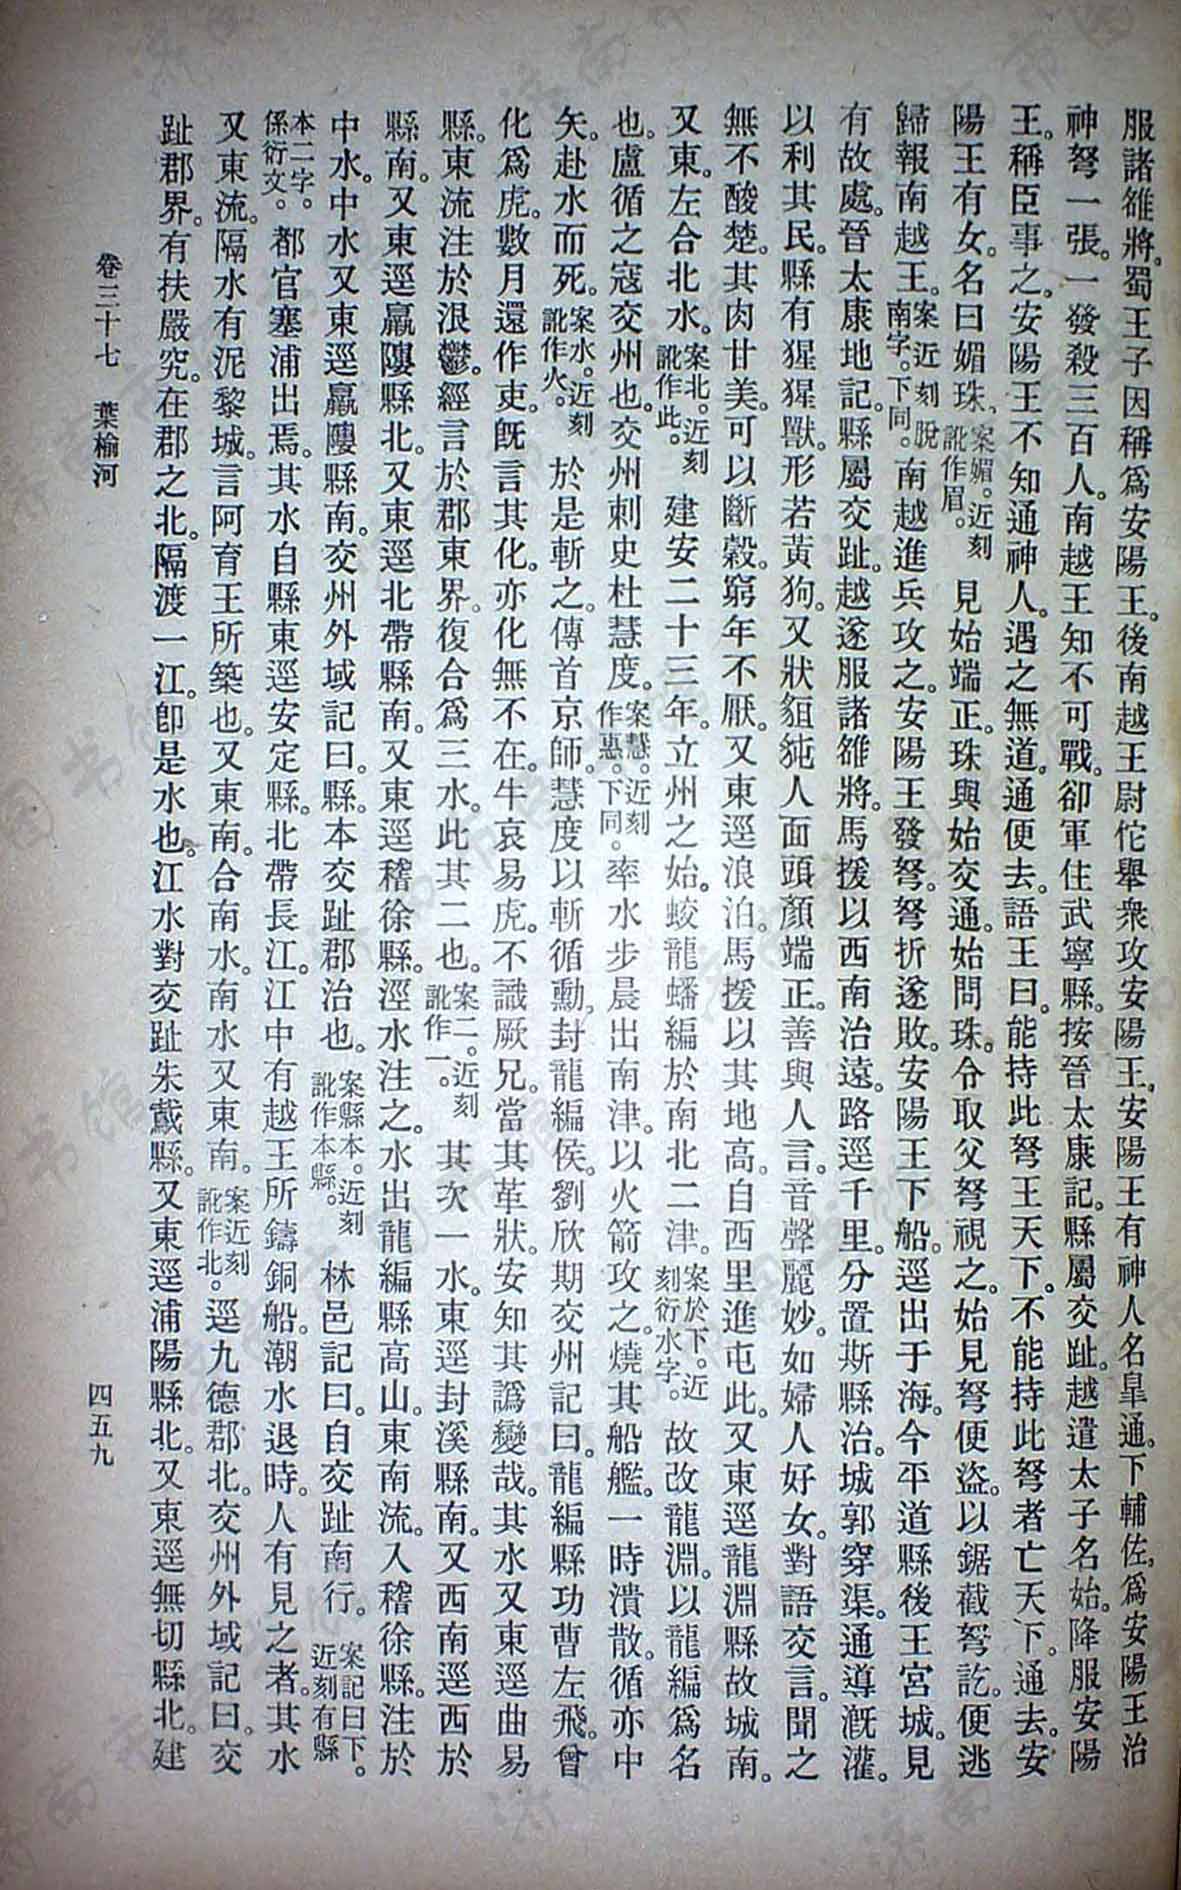 服諸雒將。蜀王子因稱爲安陽王。後南越王尉佗舉衆攻安陽王。安陽王有神人名臯通。下輔佐。爲安陽王治
神弩一張。一發殺三百人。南越王知不可戰。卻軍住武寧縣。按晉太康記。縣屬交趾。越遣太子名始。降服安陽
王。稱臣事之。安陽王不知通神人。遇之無道。通便去。語王曰。能持此弩王天下。不能持此弩者亡天下。通去。安
陽王有女。名曰媚珠。案媚。近刻訛作眉。見始端正。珠與始交通。始問珠。令取父弩視之。始見弩便盜。以鋸截弩訖。便逃
歸報南越王。案近刻脫南字。下同。南越進兵攻之。安陽王發弩。弩折遂敗。安陽王下船。逕出于海。今平道縣後王宮城。見
有故處。晉太康地記。縣屬交趾。越遂服諸雒將。馬援以西南治遠。路逕千里。分置斯縣治。城郭穿渠。通導溉灌。
以利其民。縣有猩猩獸。形若黃狗。又狀貆㹠人面頭顏端正。善與人言。音聲麗妙。如婦人好女。對語交言。聞之
無不酸楚。其肉甘美。可以斷穀。窮年不厭。又東逕浪泊。馬援以其地高。自西里進屯此。又東逕龍淵縣故城南。
又東。左合北水。案北。近刻訛作此。建安二十三年。立州之始。蛟龍蟠編於南北二津。案於下。近刻衍水字。故改龍淵。以龍編爲名
也。盧循之寇交州也。交州刺史杜慧度。案慧。近刻作惠。下同。率水步晨出南津。以火箭攻之。燒其船艦。一時潰散。循亦中
矢。赴水而死。案水。近刻訛作火。於是斬之。傳首京師。慧度以斬循勳。封龍編侯。劉欣期交州記曰。龍編縣功曹左飛。曾
化爲虎。數月還作吏。旣言其化。亦化無不在。牛哀易虎。不識厥兄。當其革狀。安知其譌變哉。其水又東逕曲易
縣。東流注於浪鬱。經言於郡東界。復合爲三水。此其二也。案二。近刻訛作一。其次一水。東逕封溪縣南。又西南逕西於
縣南。又東逕羸𨻻縣北。又東逕北帶縣南。又東逕稽徐縣。涇水注之。水出龍編縣高山。東南流。入稽徐縣。注於
中水。中水又東逕羸𨻻縣南。交州外域記曰。縣。本交趾郡治也。案縣本。近刻訛作本縣。林邑記曰。自交趾南行。案記曰下。近刻有縣
本二字。係衍文。都官塞浦出焉。其水自縣東逕安定縣。北帶長江。江中有越王所鑄銅船。潮水退時。人有見之者。其水
又東流。隔水有泥黎城。言阿育王所築也。又東南。合南水。南水又東南。案近刻訛作北。逕九德郡北。交州外域記曰。交
趾郡界。有扶嚴究。在郡之北。隔渡一江。卽是水也。江水對交趾朱䳒縣。又東逕浦陽縣北。又東逕無切縣北。建
卷三十七 葉榆河
四五九